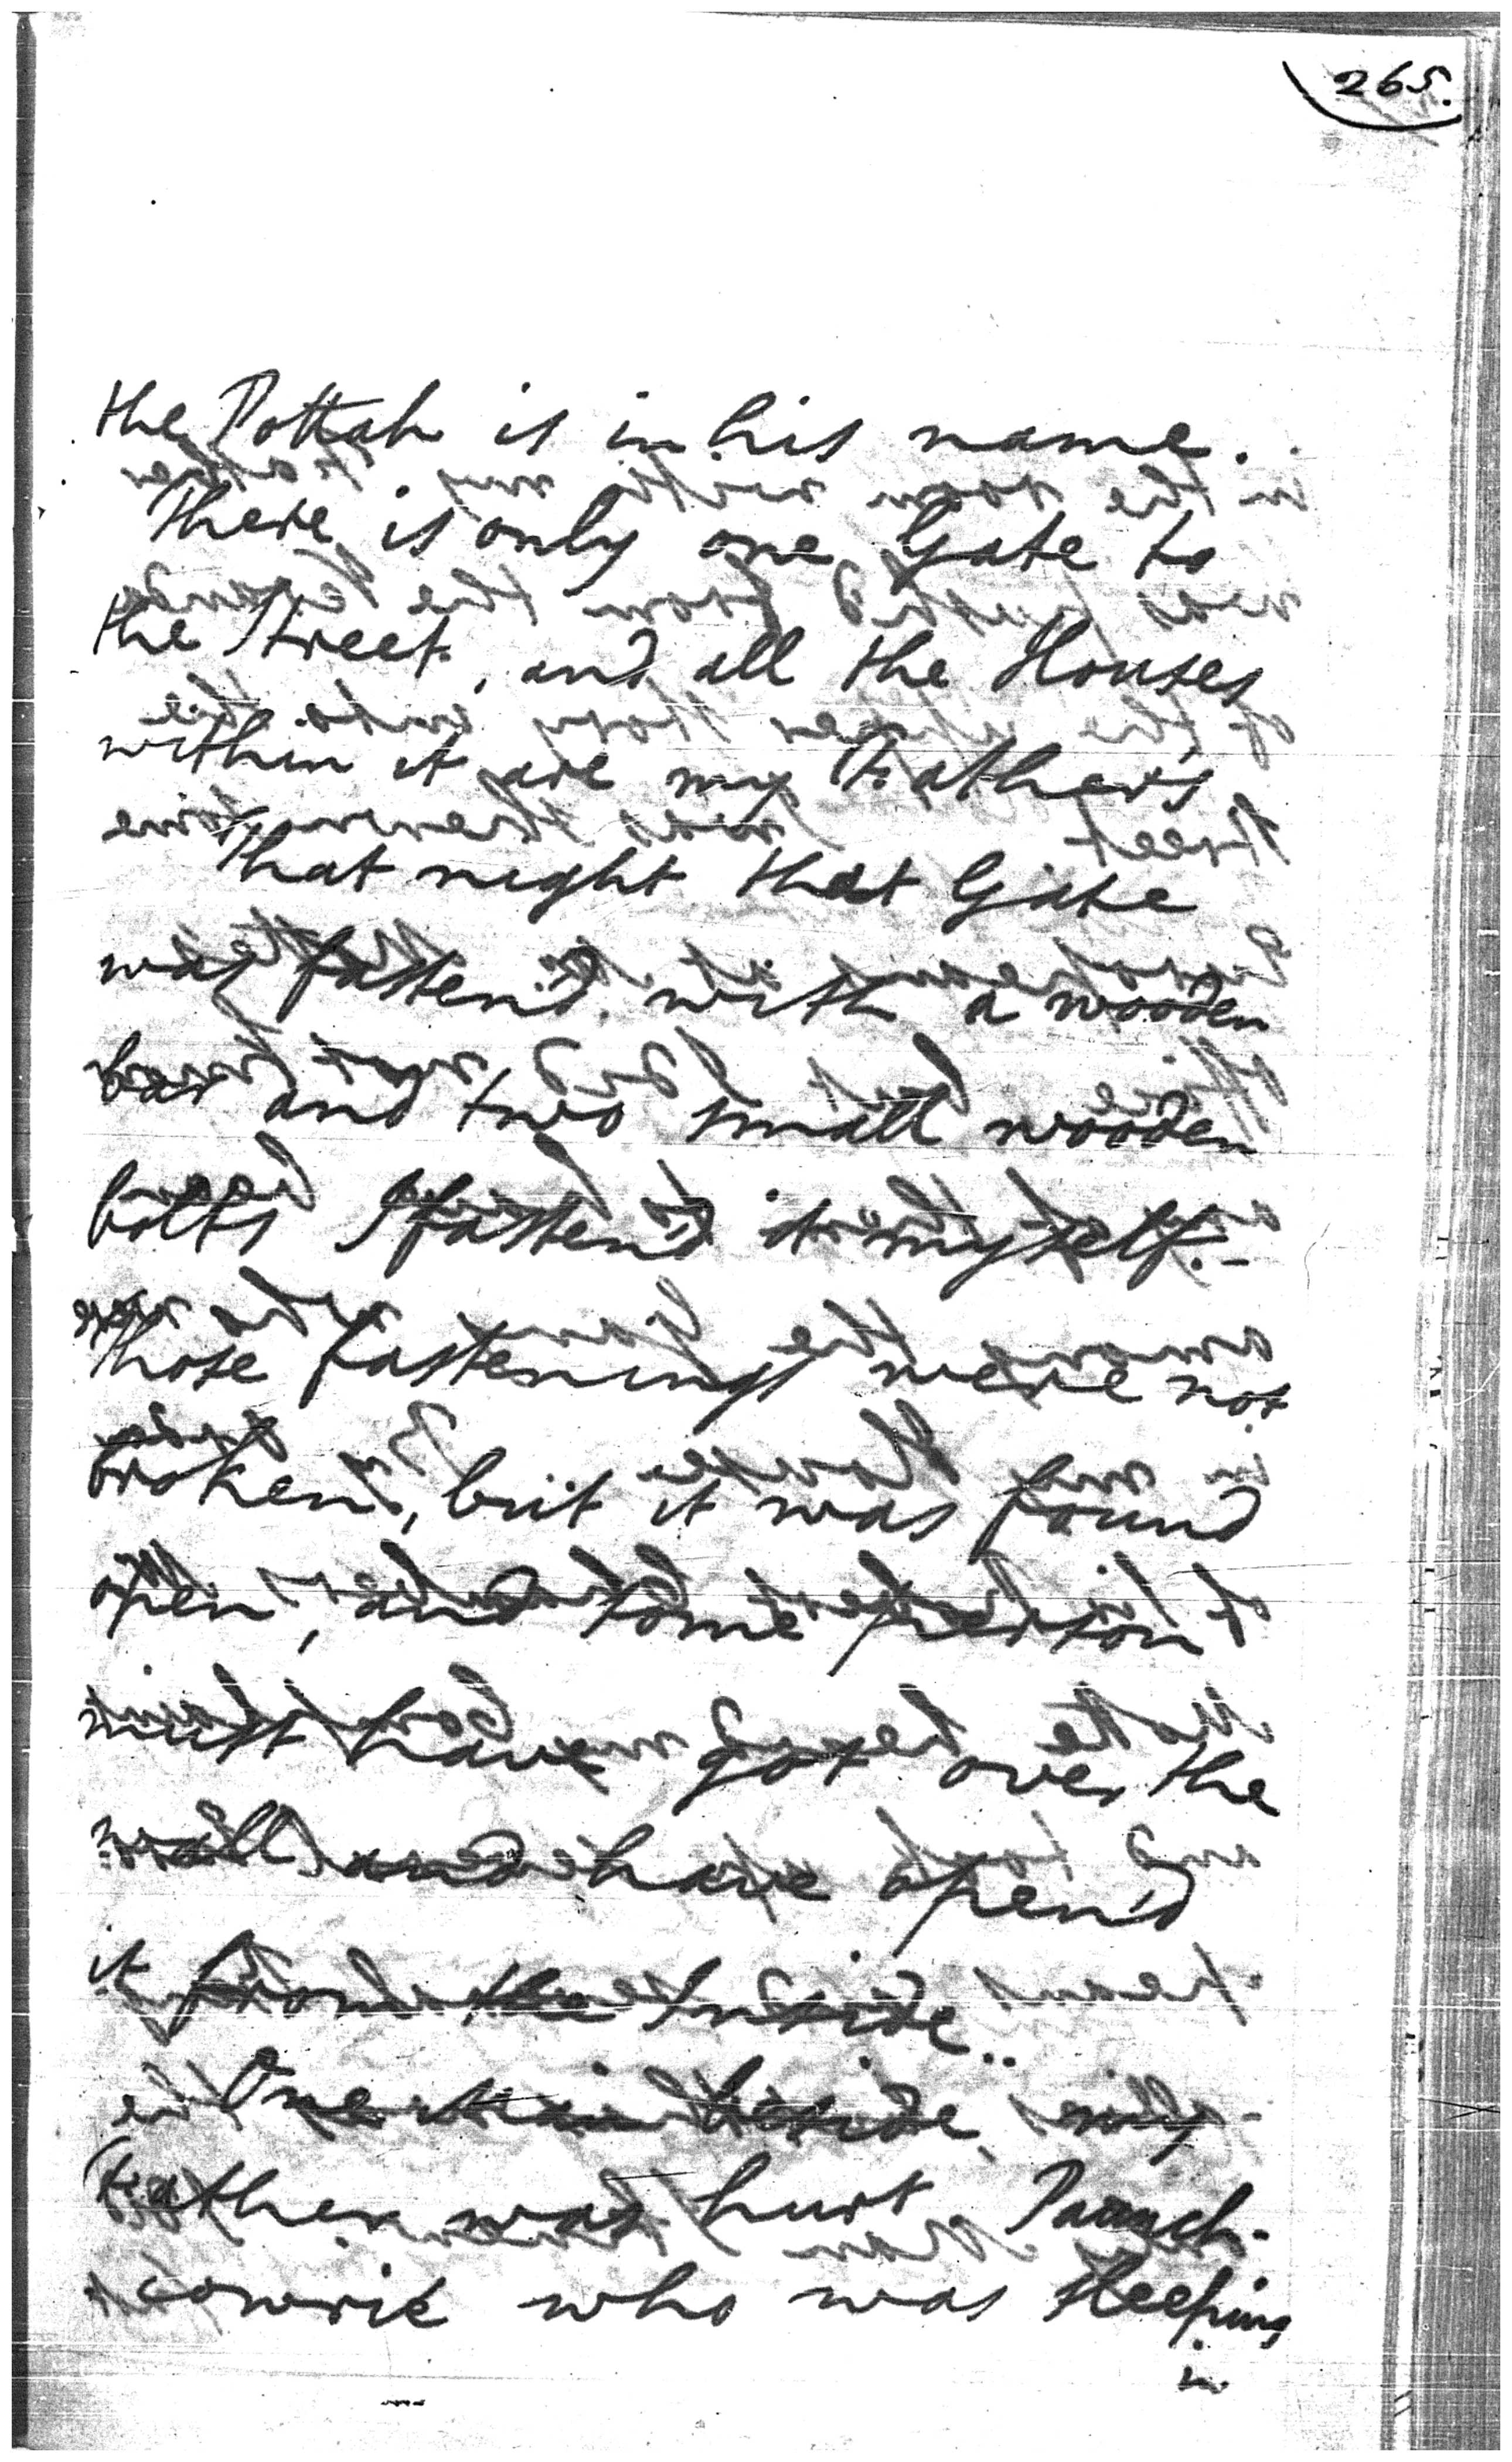 265.
the Pottah is in his name.
There is only one Gate to
the Street, and all the Houses
within it are my Fathers
That night that Gate
was fasten'd with a wooden
bar and two small wooden
bolts I fasten'd it myself.-
Those fastenings were not
broken, but it was found
open, and some person
must have got over the
wall and have open'd
it from the Inside..
One Man beside my
Father was hurt Paunch-
cowrie who was sleeping
in